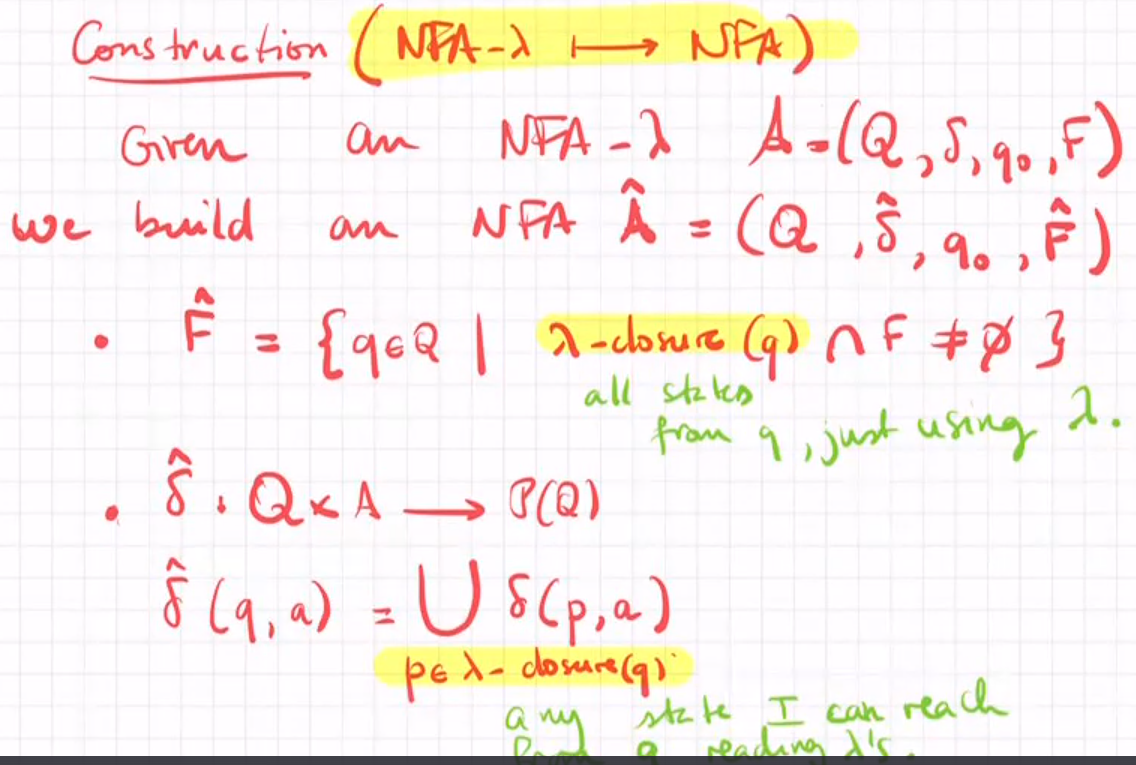 Construction (NFA-λ ⟼ NFA)
Given an NFA-λ A=(Q,δ,q₀,F)
we build an NFA Â = (Q,δ̂,q₀,F̂)
• F̂ = {q∈Q | λ-closure(q) ∩ F ≠ ∅}
all states
from q, just using λ.
• δ̂ : Q×A ⟶ P(Q)
δ̂(q,a) = ⋃ δ(p,a)
p∈ λ-closure(q)
any state I can reach
from q reading λ's.